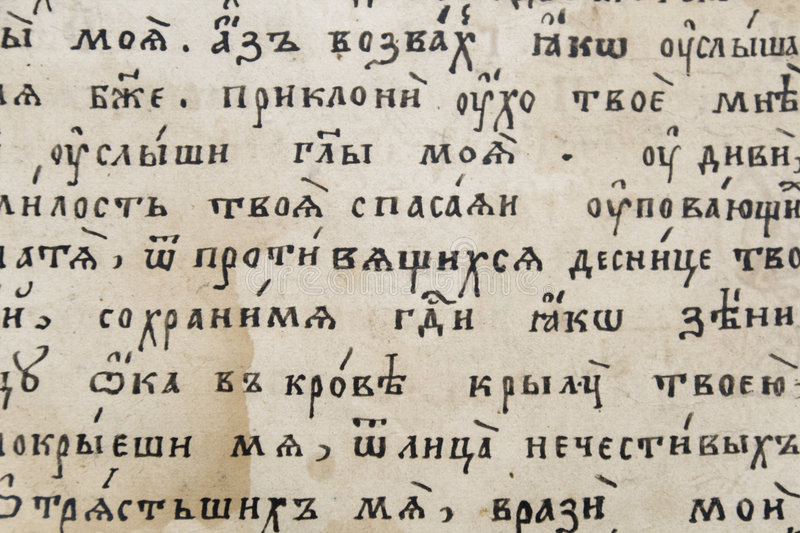 ы̀ моѧ̀. а҆́зъ возва́хъ ꙗ҆́кѡ оу҆слы́ша
мѧ бж҃е. приклонѝ оу҆́хо твоѐ мнѣ̀
оу҆слы́ши гл҃ы моѧ̀. оу҆дивѝ,
ми́лость твоѧ̀ спаса́ѧи оу҆пова́ющиѧ
натѧ̀, ѿ проти́вѧщихсѧ десни́це тво
е́й, сохрани́мѧ гд҃и ꙗ҆́кѡ зѣ́ни
цꙋ ѻ҆́ка въ кро́вѣ крылꙋ̀ твоє́ю
покры́еши мѧ, ѿ лица̀ нечести́выхъ
ѡ҆стрѧ́стьшихъ мѧ̀, вразѝ моѝ
dreamstime